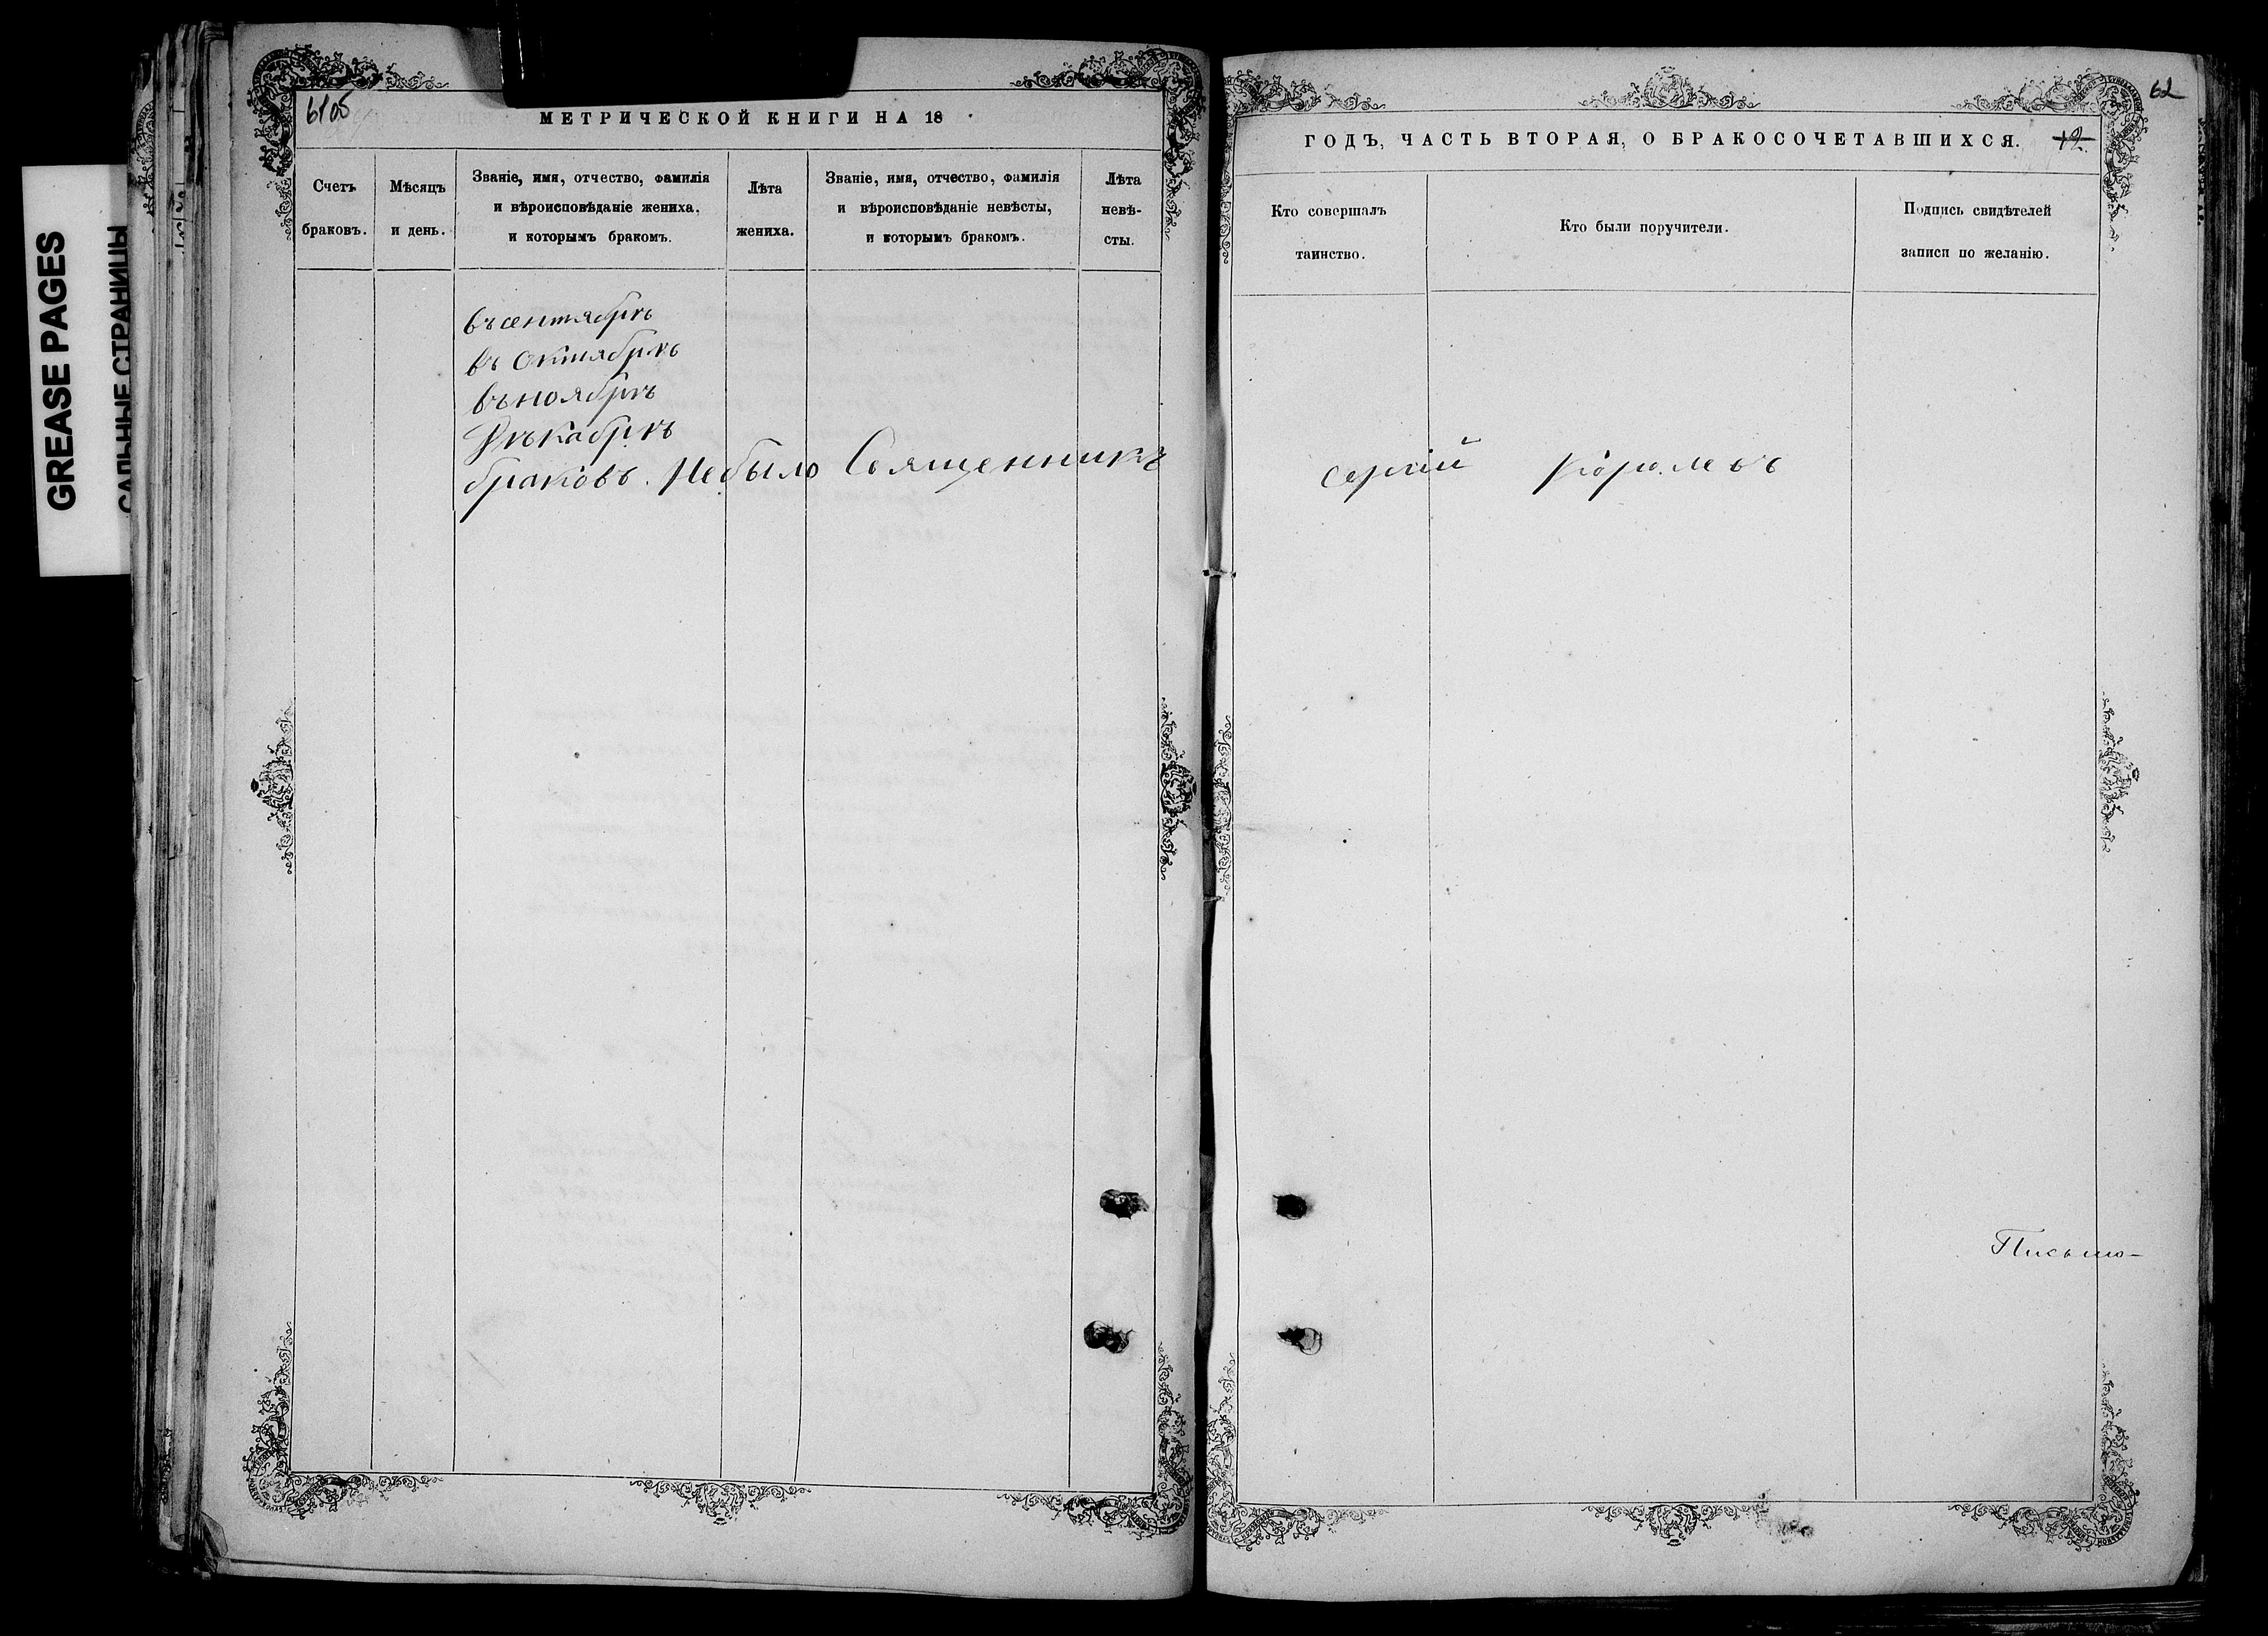 GREASE PAGES
САЛЬНЫЕ СТРАНИЦЫ
МЕТРИЧЕСКОЙ КНИГИ НА 18
Счетъ
браковъ.
Мѣсяцъ
и день.
Званіе, имя, отчество, фамилія
и вѣроисповѣданіе жениха,
и которымъ бракомъ.
Лѣта
жениха.
Званіе, имя, отчество, фамилія
и вѣроисповѣданіе невѣсты,
и которымъ бракомъ.
Лѣта
невѣ-
сты.
въ сентябрѣ
въ октябрѣ
въ ноябрѣ
Дѣкабрѣ
браковъ. Не было Священникъ
62
ГОДЪ, ЧАСТЬ ВТОРАЯ, О БРАКОСОЧЕТАВШИХСЯ. 12
Кто совершалъ
таинство.
Кто были поручители.
Подпись свидѣтелей
записи по желанію.
Сергій Королевъ
Письмо-